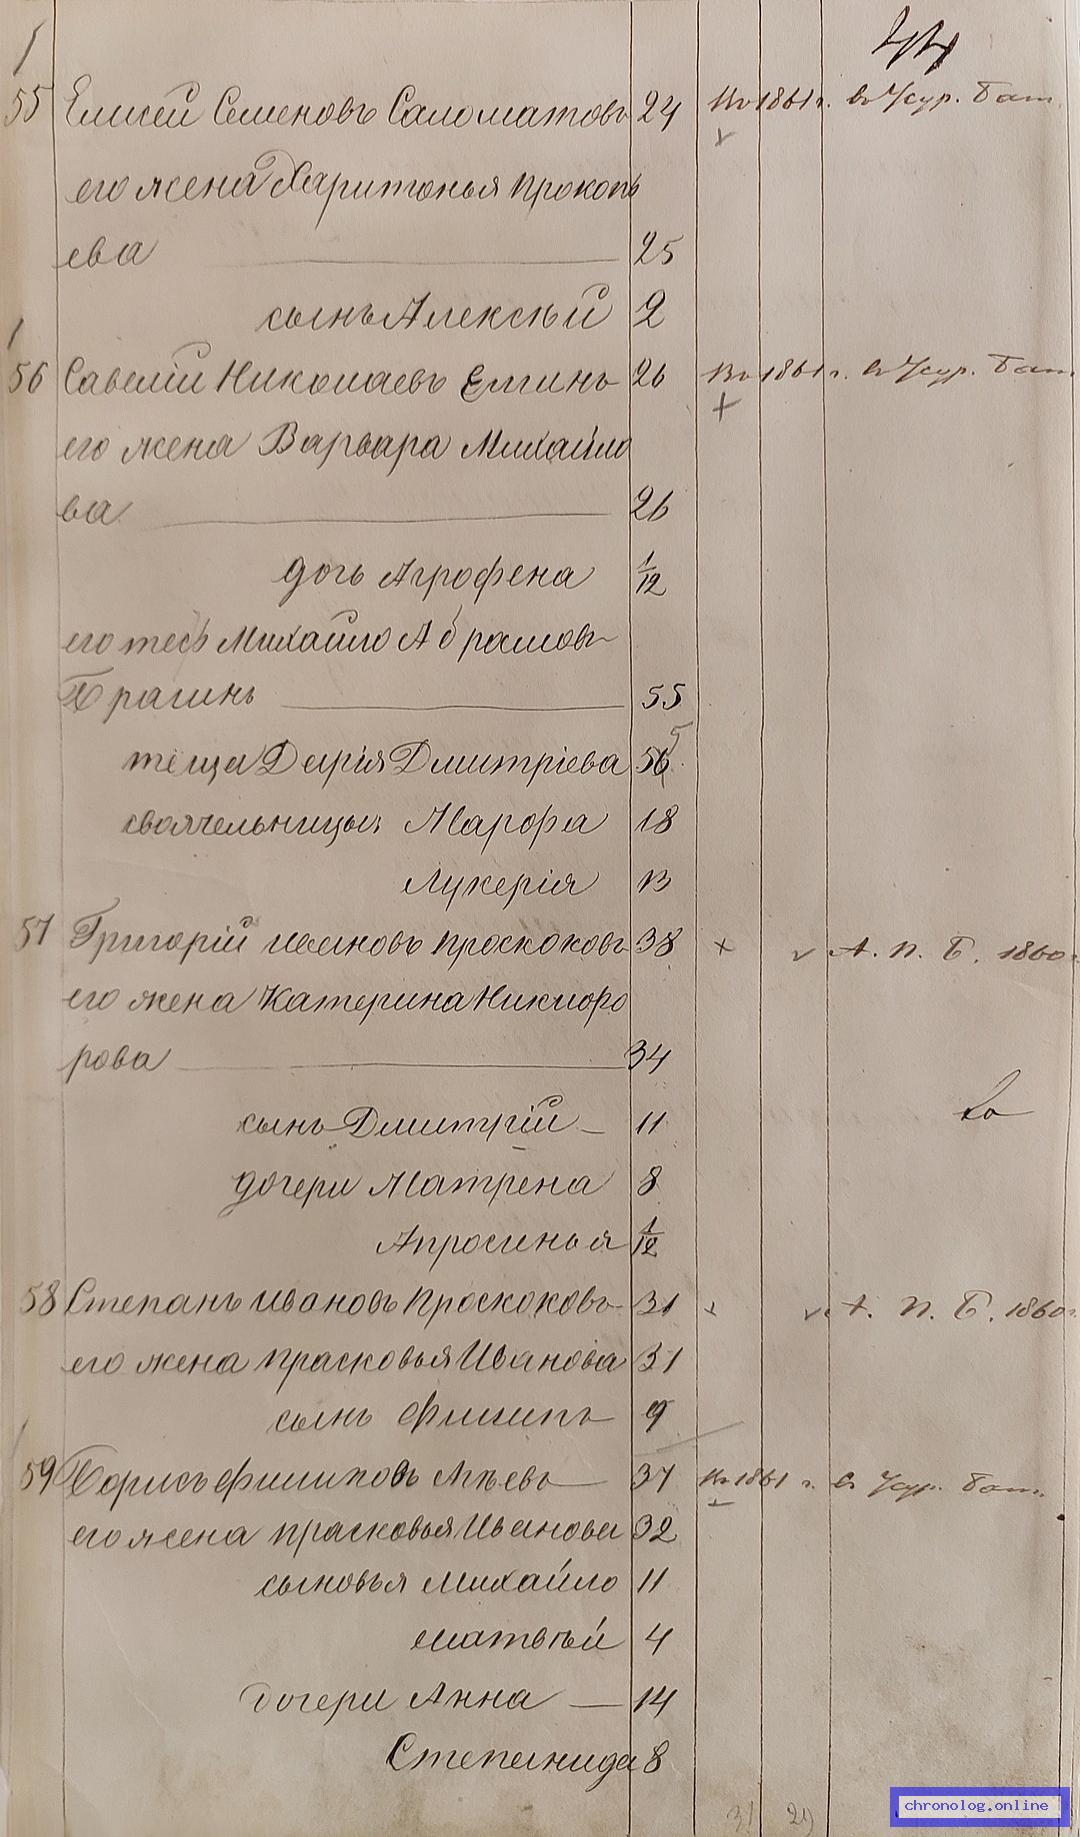 44
55 Елисей Семеновъ Саломатовъ 24 Въ 1861 г. въ Усур. Бат.
его жена Харитонья Прокопь
ева 25
сынъ Алексѣй 2
56 Савелій Николаевъ Елгинъ 26 Въ 1861 г. въ Усур. Бат.
его жена Варвара Михайло
ва 26
дочь Агрофена 1/12
его тесь Михайло Абрамовъ
Брагинъ 55
теща Дарія Дмитріева 56 5
своячельницы Марфа 18
Лукерія 13
57 Григорій Ивановъ Проскоковъ 38 А. П. Б. 1860 г.
его жена Катерина Никифо
рова 34
сынъ Дмитрій 11
дочери Матрена 8
Апросинья 1/12
58 Степанъ Ивановъ Проскоковъ 31 А. П. Б. 1860 г.
его жена Прасковья Иванова 31
сынъ Филипъ 9
59 Борисъ Филиповъ 37 Въ 1861 г. въ Усур. Бат.
его жена Прасковья Иванова 32
сыновья Михайло 11
Матвѣй 4
дочери Анна 14
Степанида 8
31 29
chronolog.online